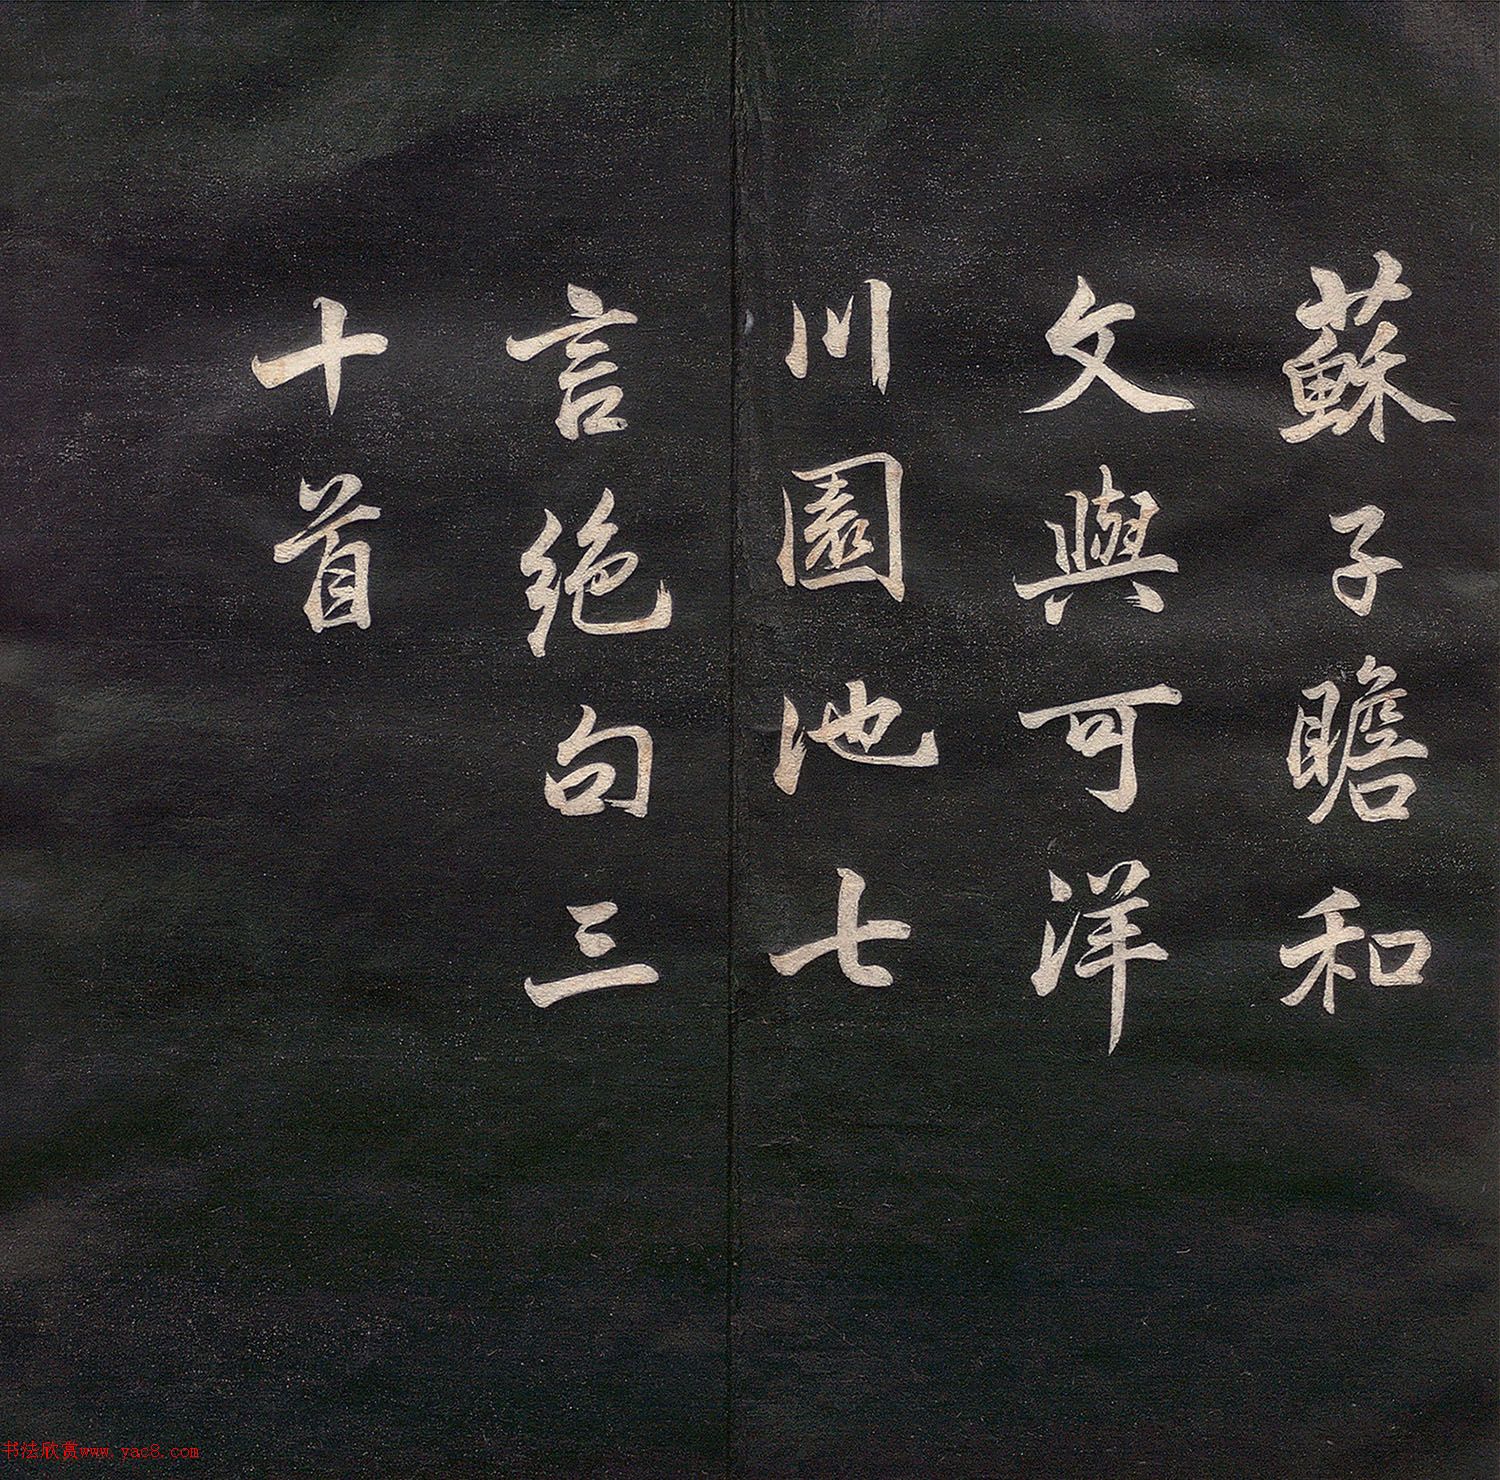 蘇子瞻和
文與可洋
川園池七
言絶句三
十首
书法欣赏www.yac8.com